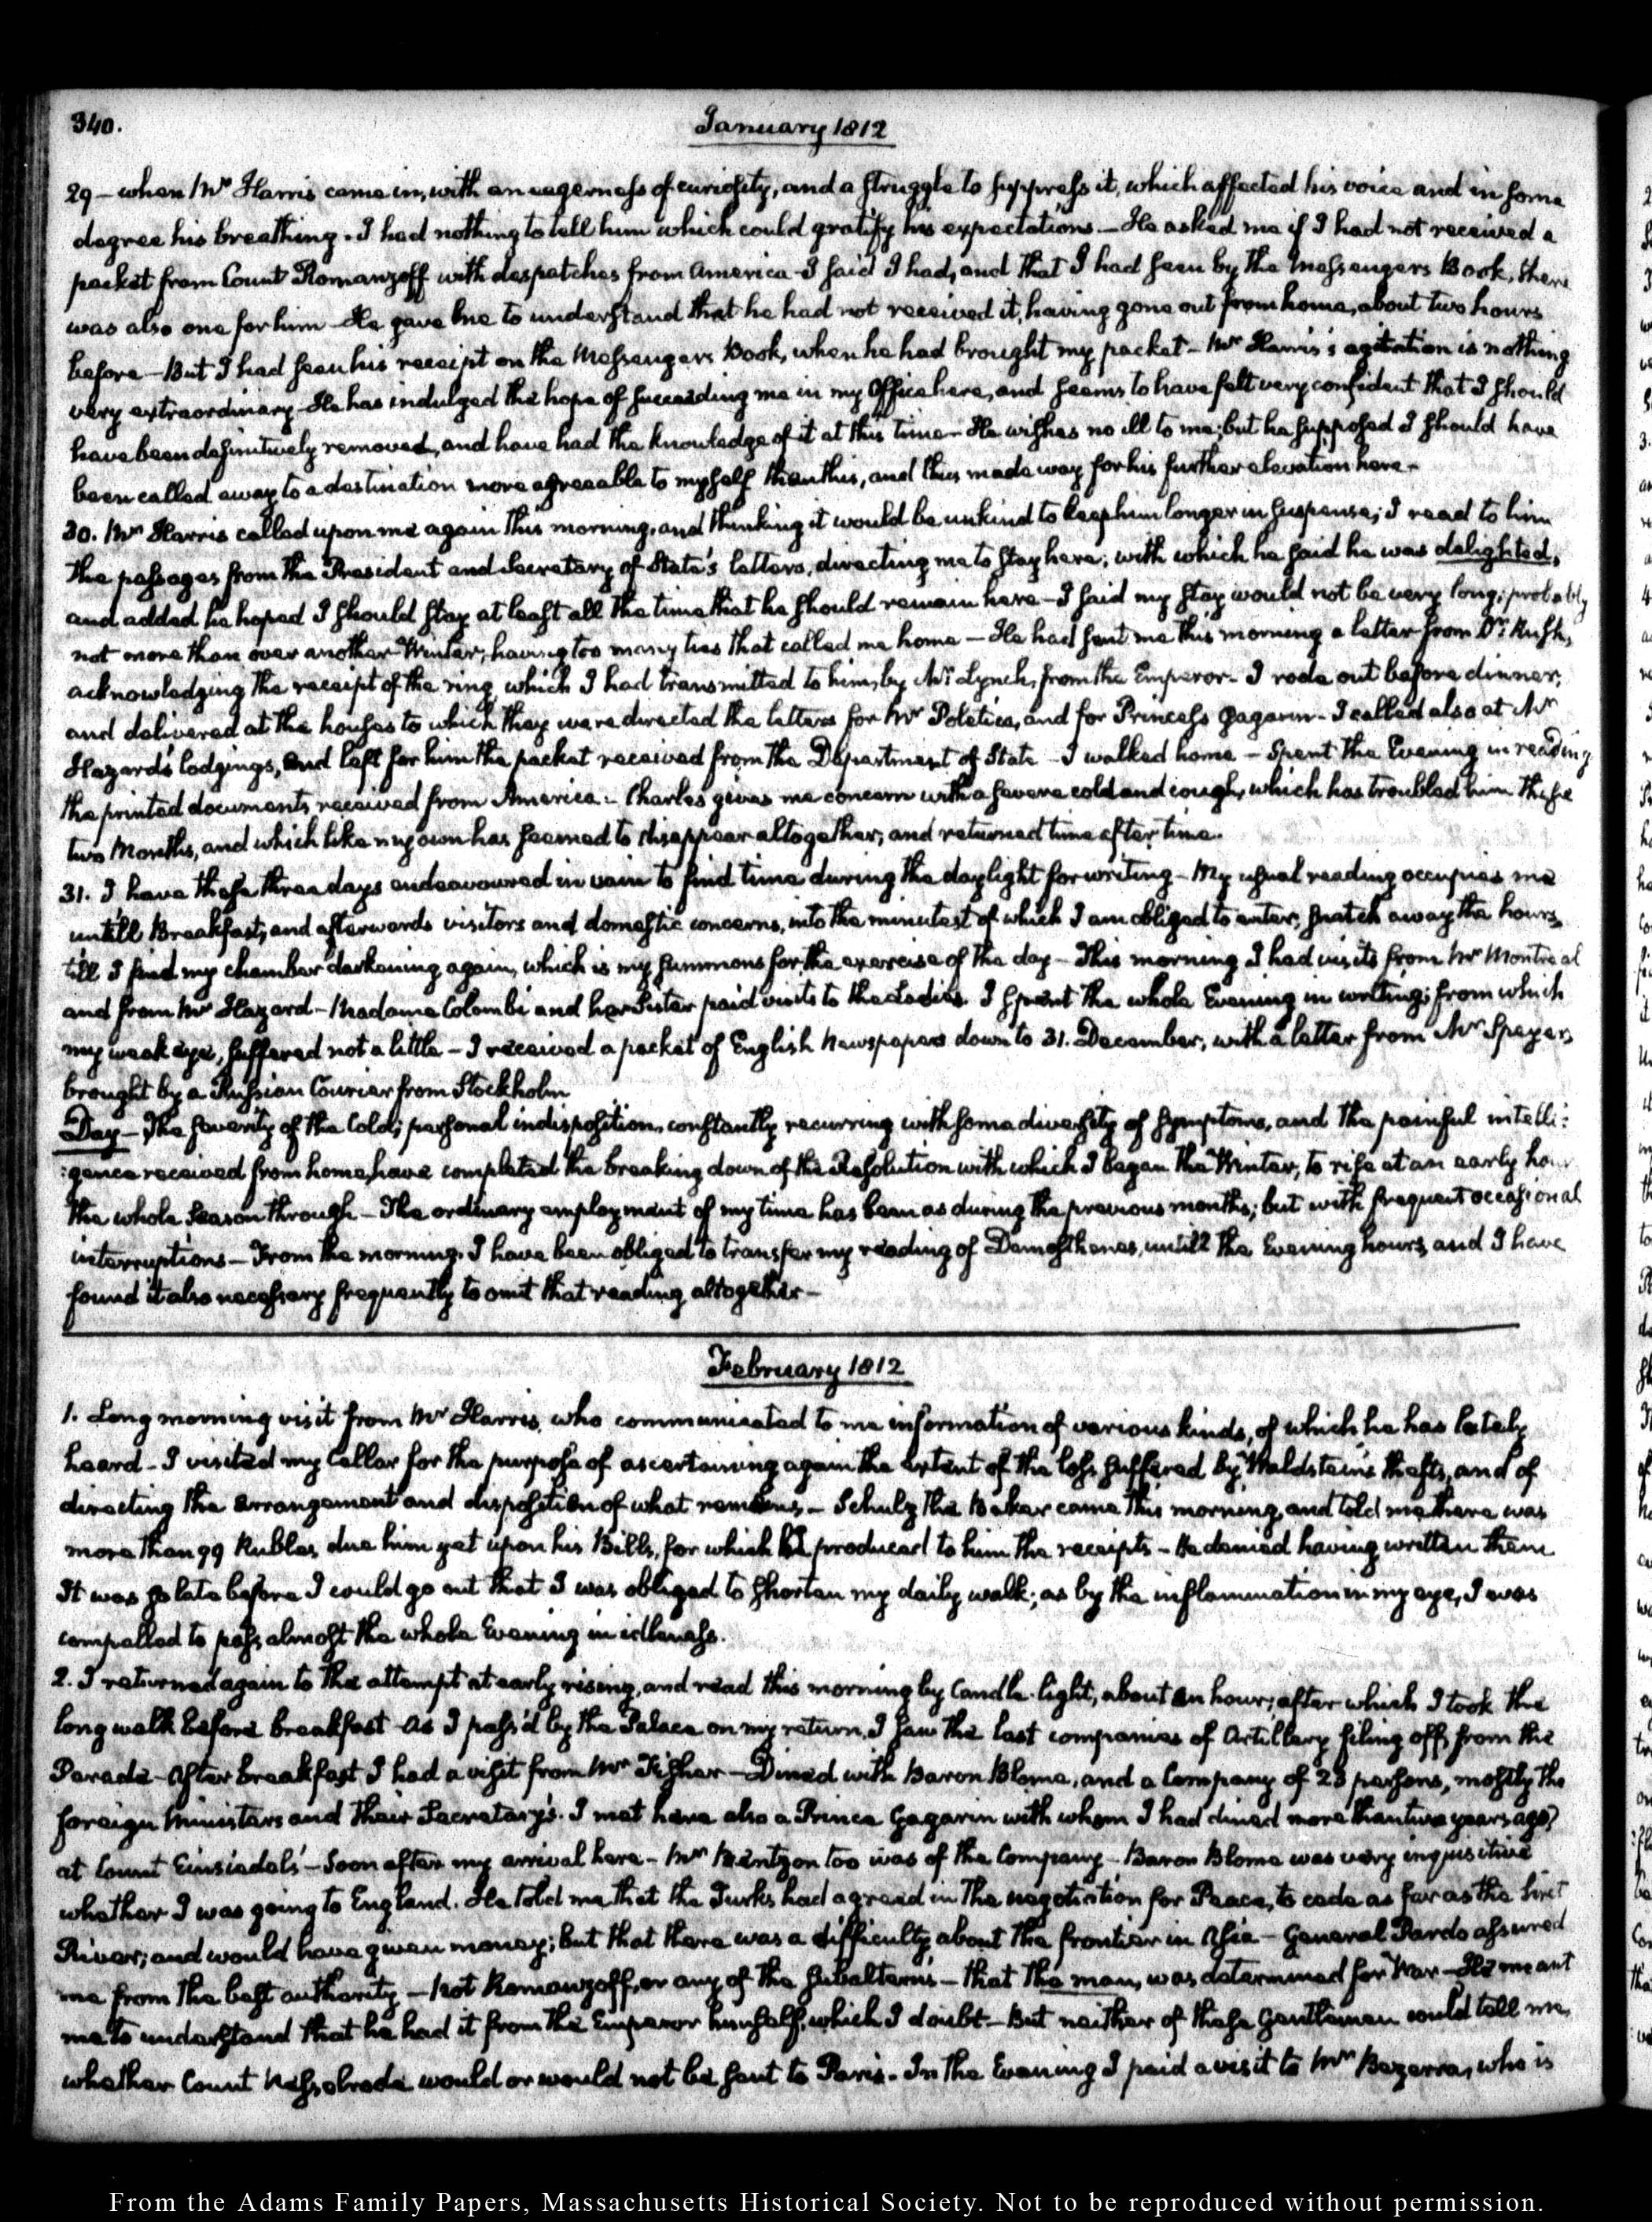 340.
January 1812
29 – when Mr Harris came in, with an eagerness of curiosity, and a struggle to suppress it, which affected his voice and in some
degree his breathing. I had nothing to tell him which could gratify his expectations – He asked me if I had not received a
packet from Count Romanzoff with despatches from America – I said I had, and that I had seen by the Messengers Book, there
was also one for him – He gave me to understand that he had not received it, having gone out from home, about two hours
before – But I had seen his receipt on the Messengers Book, when he had brought my packet – Mr Harris's agitation is nothing
very extraordinary – He has indulged the hope of succeeding me in my Office here, and seems to have felt very confident that I should
have been definitively removed, and have had the knowledge of it at this time – He wishes no ill to me; but he supposed I should have
been called away to a destination more agreeable to myself than this, and thus made way for his further elevation here –
30. Mr Harris called upon me again this morning, and thinking it would be unkind to keep him longer in suspense; I read to him
the passages from the President and Secretary of State's letters, directing me to stay here; with which he said he was delighted,
and added he hoped I should stay at least all the time that he should remain here – I said my stay would not be very long; probably
not more than over another Winter; having too many ties that called me home – He had sent me this morning a letter from Dr. Rush,
acknowledging the receipt of the ring which I had transmitted to him, by Mr Lynch, from the Emperor – I rode out before dinner;
and delivered at the houses to which they were directed the letters for Mr Poletica, and for Princess Gagarin – I called also at Mr
Hazard's lodgings, and left for him the packet received from the Department of State – I walked home – Spent the Evening in reading
the printed documents received from America – Charles gives me concern with a severe cold and cough, which has troubled him these
two Months, and which like my own has seemed to disappear altogether, and returned time after time.
31. I have these three days endeavoured in vain to find time during the daylight for writing – My usual reading occupies me
untill Breakfast, and afterwards visitors and domestic concerns, into the minutest of which I am obliged to enter, snatch away the hours,
till I find my chamber darkening again, which is my summons for the exercise of the day – This morning I had visits from Mr Montreal
and from Mr Hazard – Madame Colombi and her Sister paid visits to the Ladies. I spent the whole Evening in writing; from which
my weak eye, suffered not a little – I received a packet of English Newspapers down to 31. December, with a letter from Mr Speyer,
brought by a Russian Courier from Stockholm
Day – The severity of the Cold; personal indisposition, constantly recurring with some diversity of symptoms, and the painful intelli:
:gence received from home, have completed the breaking down of the Resolution with which I began the Winter, to rise at an early hour
the whole Season through – The ordinary employment of my time has been as during the previous months; but with frequent occasional
interruptions – From the morning, I have been obliged to transfer my reading of Demosthenes, untill the Evening hours, and I have
found it also necessary frequently to omit that reading altogether –
February 1812
1. Long morning visit from Mr Harris, who communicated to me information of various kinds, of which he has lately
heard – I visited my Cellar for the purpose of ascertaining again the extent of the loss suffered by Waldstein's thefts, and of
directing the arrangement and disposition of what remains – Schulz the Baker came this morning, and told me there was
more than 99 Rubles due him yet upon his Bills, for which I produced to him the receipts – He denied having written them
It was so late before I could go out that I was obliged to shorten my daily walk; as by the inflammation in my eye, I was
compelled to pass almost the whole Evening in idleness.
2. I returned again to the attempt at early rising, and read this morning by Candle-light, about an hour; after which I took the
long walk before breakfast – As I pass'd by the Palace on my return, I saw the last companies of Artillery filing off from the
Parade – After breakfast I had a visit from Mr Fisher – Dined with Baron Blome, and a Company of 23 persons, mostly the
foreign Ministers and their Secretary's. I met here also a Prince Gagarin with whom I had dined more than two years ago
at Count Einsiedel's – soon after my arrival here – Mr Krentzen too was of the Company – Baron Blome was very inquisitive
whether I was going to England. He told me that the Turks had agreed in the negotiation for Peace, to cede as far as the Siret
River; and would have given money; but that there was a difficulty about the frontier in Asia – General Pardo assured
me from the best authority – not Romanzoff, or any of the subalterns – that the man, was determined for War – He meant
me to understand that he had it from the Emperor himself, which I doubt – But neither of these Gentlemen could tell me,
whether Count Nesselrode would or would not be sent to Paris – In the Evening I paid a visit to Mr Bezerra, who is
From the Adams Family Papers, Massachusetts Historical Society. Not to be reproduced without permission.